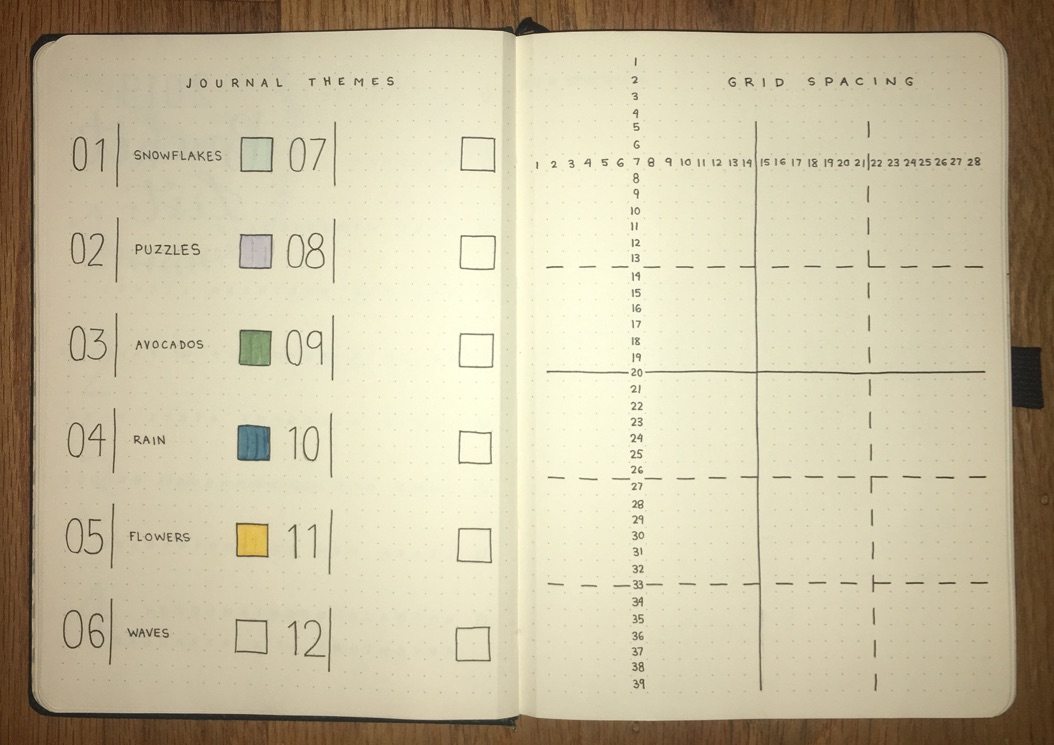 JOURNAL THEMES
01 SNOWFLAKES
02 PUZZLES
03 AVOCADOS
04 RAIN
05 FLOWERS
06 WAVES
07
08
09
10
11
12
GRID SPACING
1
2
3
4
5
6
1 2 3 4 5 6 7 8 9 10 11 12 13 14 15 16 17 18 19 20 21 22 23 24 25 26 27 28
8
9
10
11
12
13
14
15
16
17
18
19
20
21
22
23
24
25
26
27
28
29
30
31
32
33
34
35
36
37
38
39